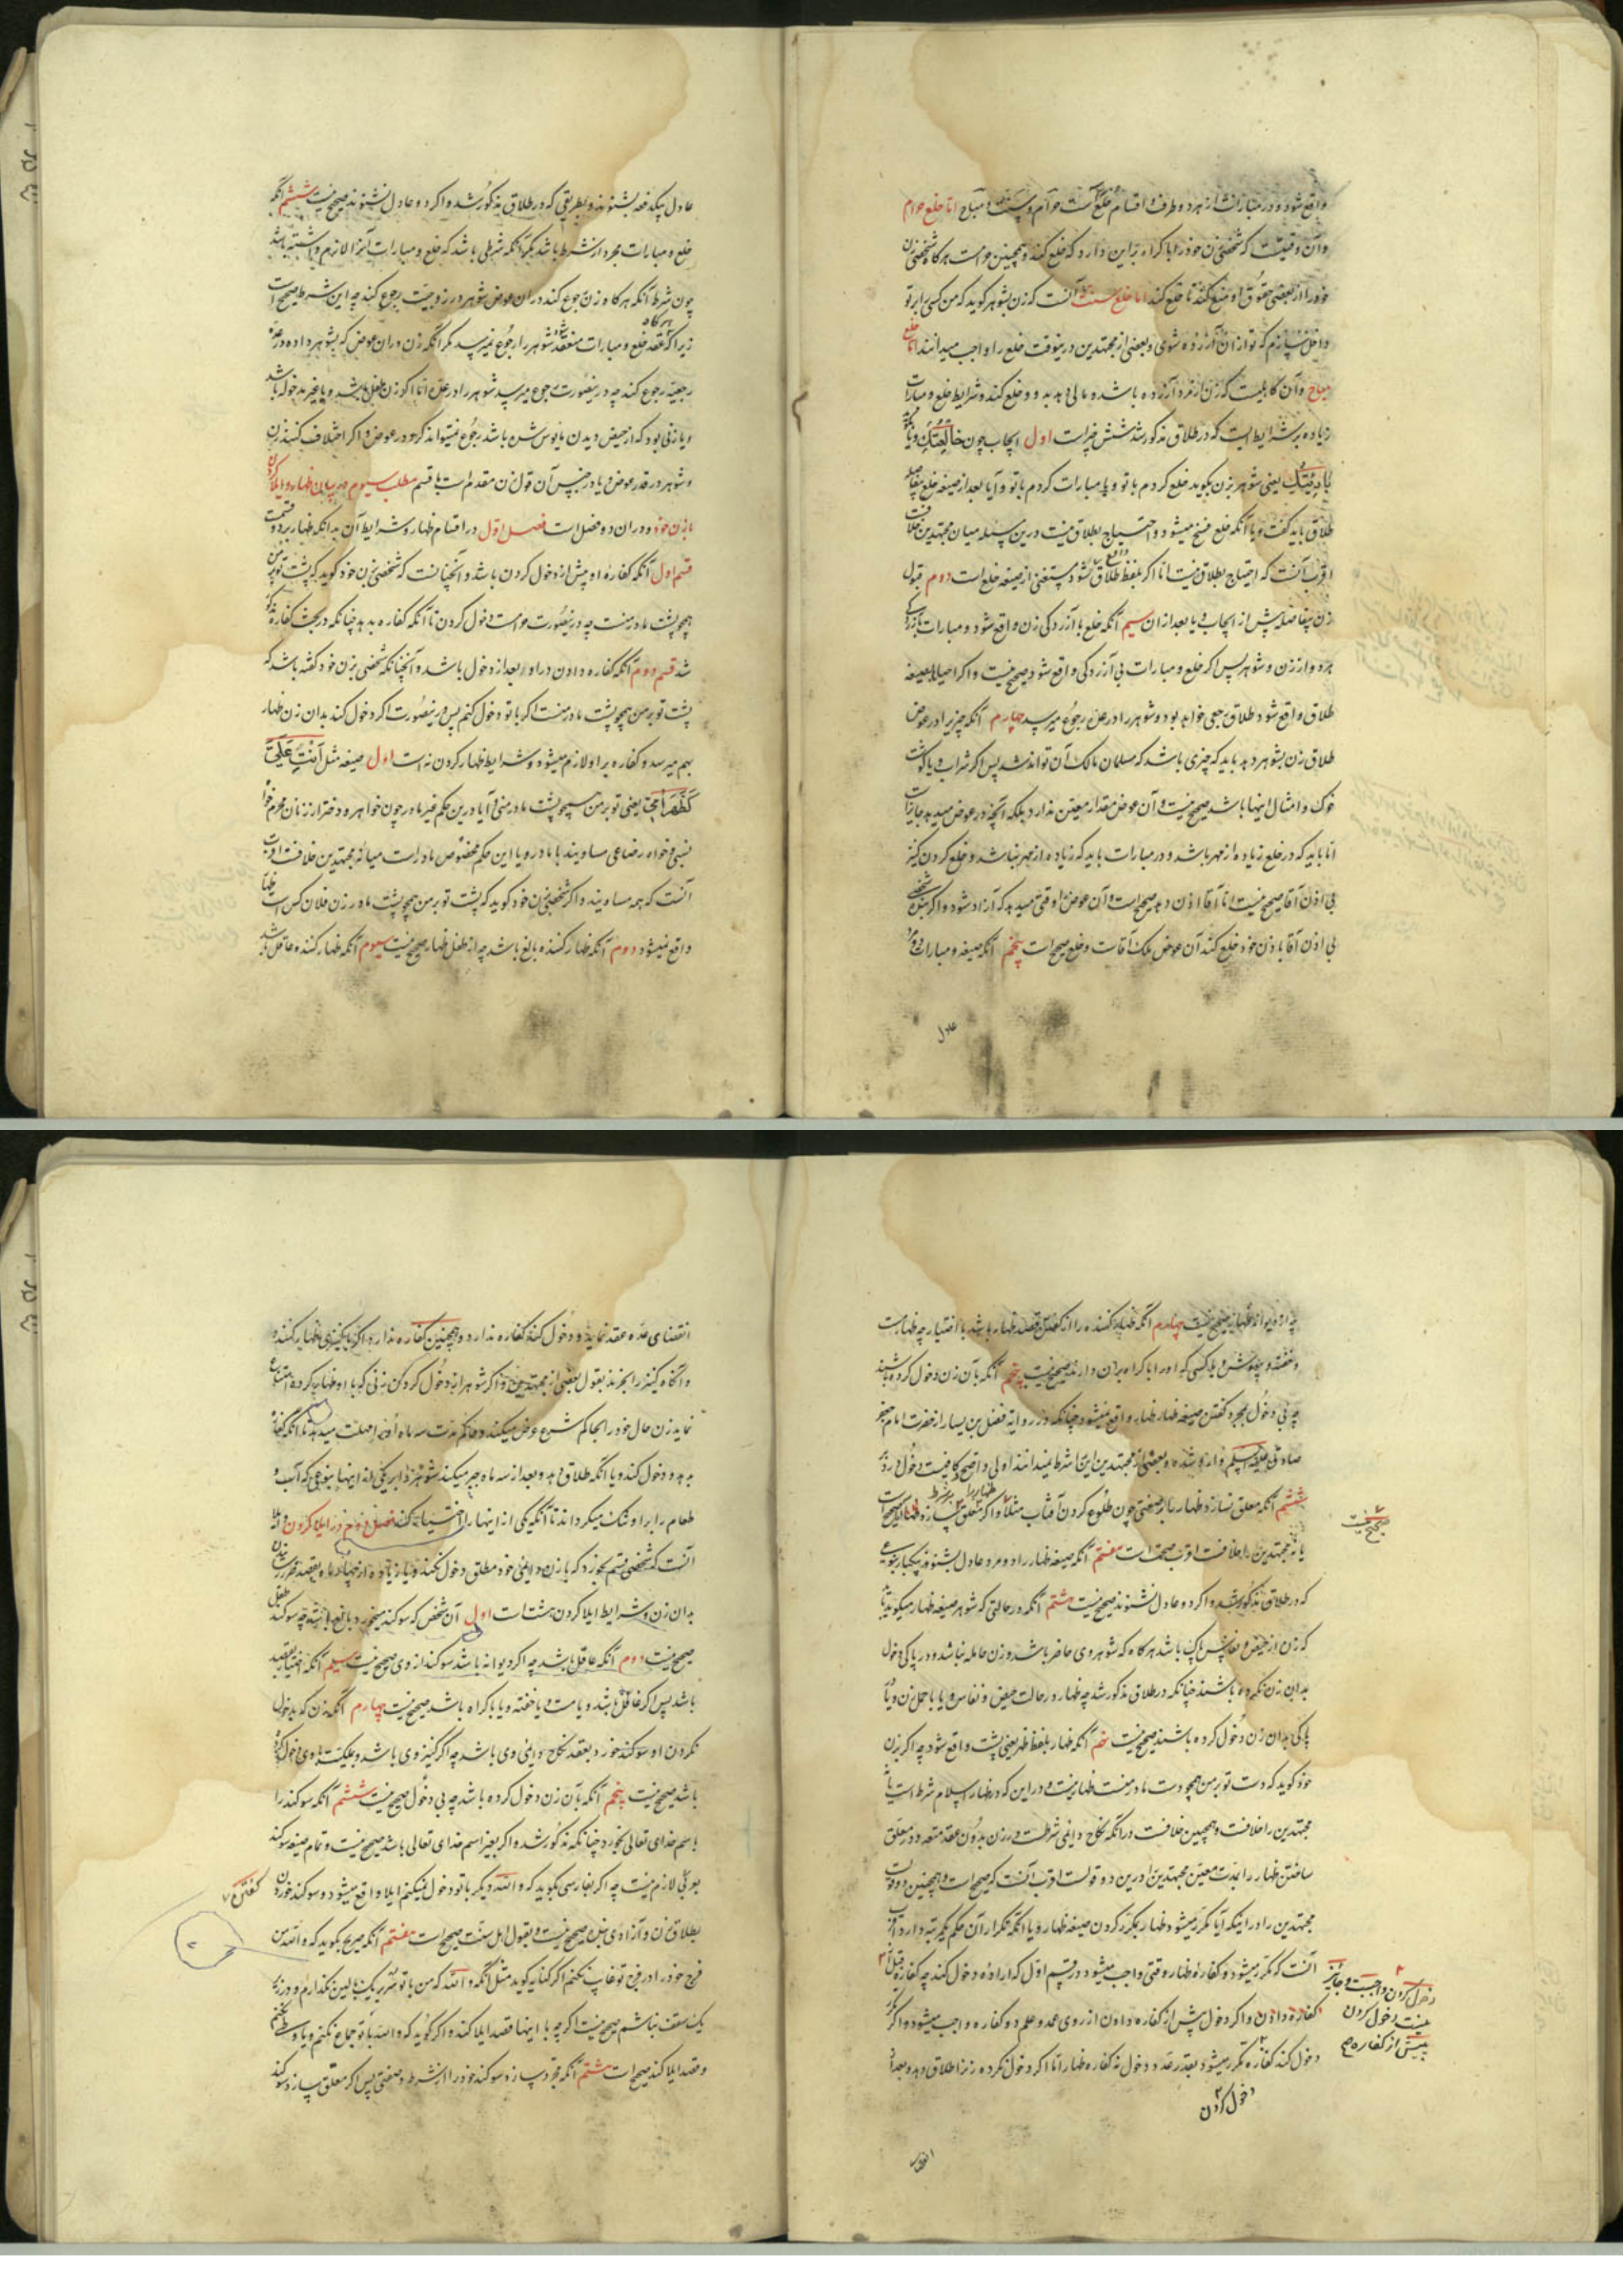 واقع شود و در مبارات از هر دو طرف و اقسام خلع سه است حرام و سنت و مباح اما خلع حرام
وآن وقتیست که شخصی زن خود را باکراه براین دارد که خلع کند و همچنین حرامست هرکاه شخصی زن
خود را از بعضی حقوق او منع کند تا خلع کند اما خلع سنت آنست که زن بشوهر کوید که من کسی را بر تو
داخل سازم که تو ازان آزرده شوی و بعضی از مجتهدین درینوقت خلع را واجب میدانند اما خلع
مباح وآن کاهیست که زن از مرد آزرده باشد و مالی بدهد و خلع کند و شرایط خلع و مبارات
زیاده بر شرایطست که در طلاق مذکور شد شش چیز است اول ایجاب چون خالعتک و یا
بارئتک یعنی شوهر بزن بکوید خلع کردم با تو و یا مبارات کردم با تو و آیا بعد از صیغه خلع بیفاصله
طلاق باید کفت و یا آنکه خلع فسخ میشود و احتیاج بطلاق نیست درین مسئله میان مجتهدین خلافست
اقرب آنست که احتیاج بطلاق نیست اما اکر بلفظ طلاق واقع شود مستغنی از صیغه خلع است دوم قبول
زن بیفاصله پیش از ایجاب و یا بعد ازان سیم آنکه خلع با آزردکی زن واقع شود و مبارات با آزردکی
هر دو از زن و شوهر پس اکر خلع و مبارات بی آزردکی واقع شود صحیح نیست و اکر احیانا بصیغه
طلاق واقع شود طلاق رجعی خواهد بود و شوهر را در عده رجوع میرسد چهارم آنکه چیزیرا در عوض
طلاق زن بشوهر دهد باید که چیزی باشد که مسلمان مالک آن تواند شد پس اکر شراب و یا کوشت
خوک و امثال اینها باشد صحیح نیست و آن عوض مقدار معین ندارد بلکه آنچه در عوض میدهد جایز است
اما باید که در خلع زیاده از مهر باشد و در مبارات باید که زیاده از مهر نباشد و خلع کردن کنیز
بی اذن آقا صحیح نیست اما آقا اذن دهد صحیح است و آن عوض را وقتی میدهد که آزاد شود و اکر شخصی بنده
بی اذن آقا با زن خود خلع کند آن عوض ملک آقاست و خلع صحیح است پنجم آنکه صیغه و مبارات را دو مرد
عادل
عادل بیکدفعه بشنوند بطریقی که در طلاق مذکور شد و اکر دو عادل نشنوند صحیح نیست ششم آنکه
خلع و مبارات مجرد از شرط باشد مکر آنکه شرطی باشد که خلع و مبارات آنرا لازم داشته باشد
چون شرط آنکه هرکاه زن رجوع کند دران عوض شوهر در زوجیت رجوع کند چه این شرط صحیح است
زیرا که هرکاه عقد خلع و مبارات منعقد شود شوهر را رجوع نمیرسد مکر آنکه زن دران عوض که بشوهر داده در عده
رجعیه رجوع کند چه درینصورت رجوع میرسد شوهر را در عده اما اکر زن طفل باشد و یا غیر مدخوله باشد
و یا زنی بود که از حیض دیدن مأیوس شده باشد رجوع نمیتواند کرد در عوض و اکر اختلاف کنند زن
و شوهر در قدر عوض و یا در جنس آن قول زن مقدم است با قسم مطلب سیوم در بیان ظهار و ایلا کردن
بازن خود و دران دو فصل است فصل اول در اقسام ظهار و شرایط آن بدانکه ظهار بر دو قسمست
قسم اول آنکه کفاره او پیش از دخول کردن باشد و آنچنانست که شخصی بزن خود کوید که پشت تو بر من
همچو پشت مادر منست چه درینصورت حرامست دخول کردن تا آنکه کفاره بدهد چنانکه در بحث کفاره مذکور
شد قسم دوم آنکه کفاره دادن در او بعد از دخول باشد و آنچنانکه شخصی بزن خود کفته باشد که
پشت تو بر من همچو پشت مادر منست اکر با تو دخول کنم پس درینصورت اکر دخول کند بدان زن ظهار
بهم میرسد و کفاره بر او لازم میشود و شرایط ظهار کردن نه است اول صیغه مثل انت علی
کظهر امی یعنی تو بر من همچو پشت مادر منی و آیا درین حکم غیر مادر چون خواهر و دختر از زنان محرم خواه
نسبی و خواه رضاعی مساویند با مادر و یا این حکم مخصوص مادر است میانه مجتهدین خلافست اقرب
آنست که همه مساویند و اکر شخصی بزن خود کوید که پشت تو بر من همچو پشت مادر زن فلان کس است ظهار
واقع نمیشود دوم آنکه ظهار کننده بالغ باشد چه از طفل ظهار صحیح نیست سیوم آنکه ظهار کننده عاقل باشد
چه از دیوانه ظهار صحیح نیست چهارم آنکه ظهار کننده را از کفتن قصد ظهار باشد با اختیار چه ظهار مست
و خفته و بیهوش و یا کسی که او را باکراه بران دارند صحیح نیست پنجم آنکه بآن زن دخول کرده باشند
چه بی دخول بمجرد کفتن صیغه ظهار ظهار واقع نمیشود چنانکه در روایة فضل بن یسار از حضرت امام جعفر
صادق علیه السلم وارد شده و بعضی از مجتهدین این را شرط نمیدانند اولی و اصح کافیست دخول در دبر
ششم آنکه معلق نسازد ظهار را بر صفتی چون طلوع کردن آفتاب مثلا و اکر معلق سازد ظهار را بر شرط صحیح است
یا نه مجتهدین را خلافست اقرب صحتست هفتم آنکه صیغه ظهار را دو مرد عادل بشنوند بیکبار بنوعی
که در طلاق مذکور شد و اکر دو عادل نشنوند صحیح نیست هشتم آنکه در حالتی که شوهر صیغه ظهار میکوید باید
که زن از حیض و نفاس پاک باشد هرکاه که شوهر وی حاضر باشد و زن حامله نباشد و در پاکی دخول
بدان زن نکرده باشند چنانکه در طلاق مذکور شد چه ظهار در حالت حیض و نفاس و یا با حمل زن و یا در
پاکی بدان زن دخول کرده باشند صحیح نیست نهم آنکه ظهار بلفظ ظهر یعنی پشت واقع شود چه اکر بزن
خود کوید که دست تو بر من همچو دست مادر منست ظهار نیست و در این که در ظهار اسلام شرط است یا نه
مجتهدین را خلافست و همچنین خلافست در آنکه نکاح دایمی شرطست در زن بدون عقد متعه و در معلق
ساختن ظهار را بمدت معین مجتهدین را درین دو قولست اقرب آنست که صحیح است و همچنین دو قولست
مجتهدین را در اینکه آیا مکرر میشود ظهار بمکرر کردن صیغه ظهار و یا آنکه تکرار آن حکم یکمرتبه دارد اقرب
آنست که مکرر میشود و کفاره ظهار وقتی واجب میشود در قسم اول که اراده دخول کند چه کفاره قبل از
کفاره دادن و اکر دخول پیش از کفاره دادن از روی عمد و علم دو کفاره واجب میشود و اکر مکرر
دخول کند کفاره مکرر میشود بقدر عدد دخول نه کفاره ظهار اما اکر دخول نکرده زنرا طلاق دهد و بعد از
صحیح نیست
دخول کردن واجبست و جایز
نیست دخول کردن
پیش از کفاره صح
دخول کردن
انقضای
انقضای عده عقد نماید و دخول کند کفاره ندارد و همچنین کفاره ندارد اکر با کنیزی ظهار کننده
و آنکاه کنیز را بخرند بقول بعضی از مجتهدین و اکر شوهر از دخول کردن زنی که با او ظهار کرده امتناع
نماید زن حال خود را بحاکم شرع عرض میکند و حاکم مدت سه ماه او را مهلت میدهد تا آنکه کفاره
بدهد و دخول کند و یا آنکه طلاق دهد و بعد از سه ماه جبر میکند شوهر را بر یکی از اینها بنوعی که آب و
طعام را بر او تنک میکرداند تا آنکه یکی از اینها را اختیار کند فصل دوم در ایلا کردن و ایلا
آنست که شخصی قسم بخورد که با زن دایمی خود مطلق دخول نکند و یا زیاده از چهار ماه بقصد ضرر رسانیدن
بدان زن و شرایط ایلا کردن هشت است اول آن شخص که سوکند میخورد بالغ باشد چه سوکند طفل
صحیح نیست دوم آنکه عاقل باشد چه اکر دیوانه باشد سوکند از وی صحیح نیست سیم آنکه باختیار بقصد
باشد پس اکر غافل باشد و یا مست و یا خفته و یا باکراه باشد صحیح نیست چهارم آنکه زن که بدخول
نکردن او سوکند خورد بعقد نکاح دایمی وی باشد چه اکر کنیز وی باشد و بملکیت با وی دخول کرده
باشد صحیح نیست پنجم آنکه بآن زن دخول کرده باشد چه بی دخول صحیح نیست ششم آنکه سوکند را
باسم خدای تعالی بخورد چنانکه مذکور شد و اکر بغیر اسم خدای تعالی باشد صحیح نیست و تمام صیغه سوکند
بعربی لازم نیست چه اکر بفارسی بکوید که والله دیکر با تو دخول نمیکنم ایلا واقع میشود و سوکند خوردن
بطلاق زن و آزادی بنده صحیح نیست و بقول اهل سنت صحیح است هفتم آنکه صریح بکوید که والله من
فرج خود را در فرج تو غایب نکنم اکر کنایه کوید مثل آنکه والله که من با تو سر بر یک بالین نکذارم و در زیر
یک سقف نباشم صحیح نیست اکرچه با اینها قصد ایلا کند و اکر کوید که والله با تو جماع نکنم و یا وطی نکنم
و قصد ایلا کند صحیح است هشتم آنکه مجرد سازد سوکند خود را از شرط و صفتی پس اکر معلق سازد سوکند
کفتن